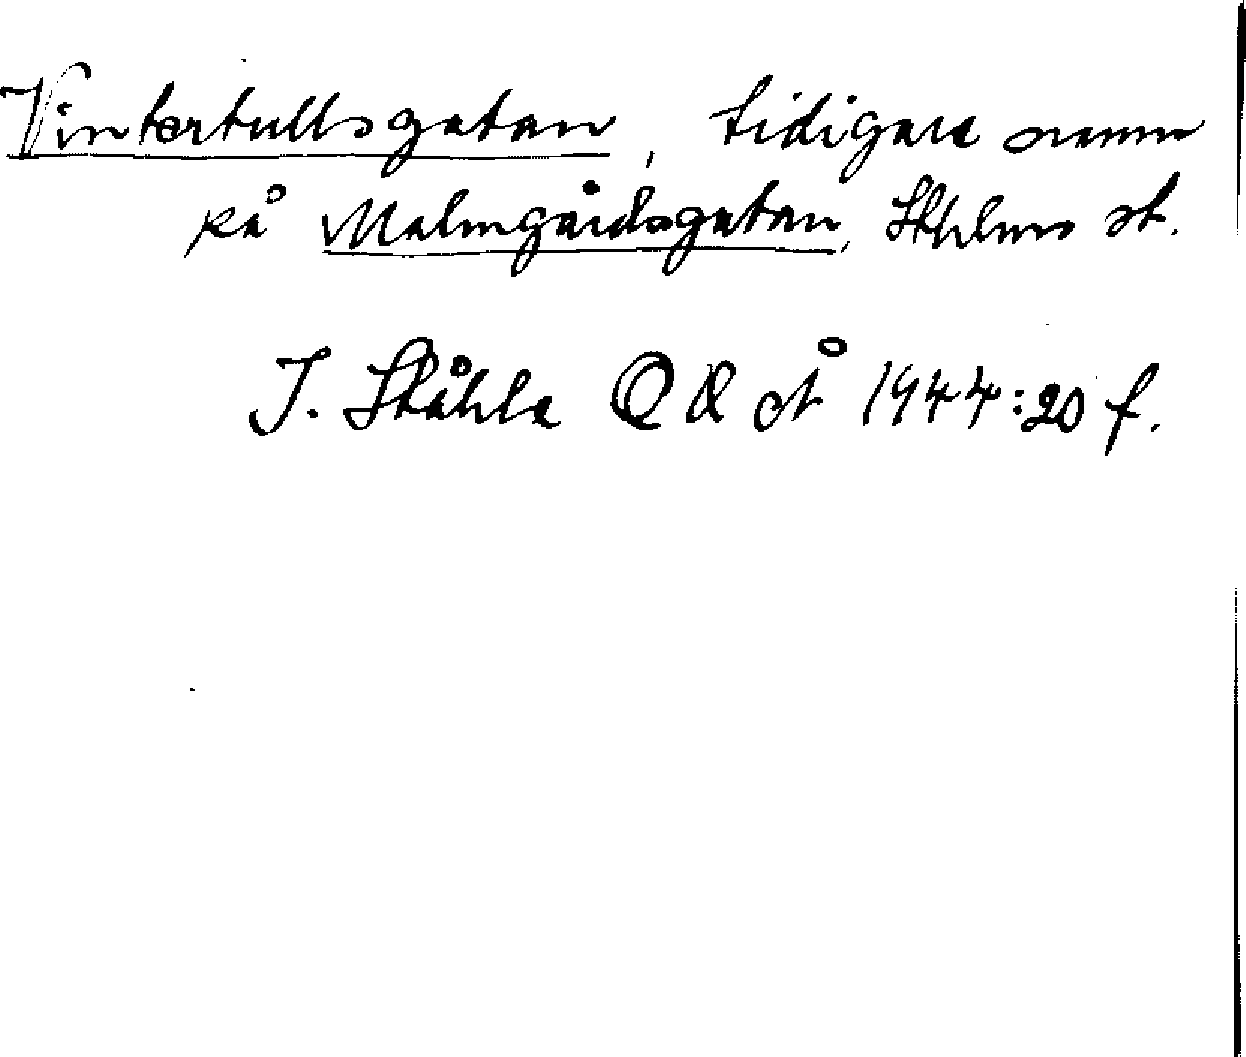 Vintertullsgatan, tidigare namn
på Malmgårdsgatan, Sthlms st.
I. Ståhle O&stÅ 1944:20 f.